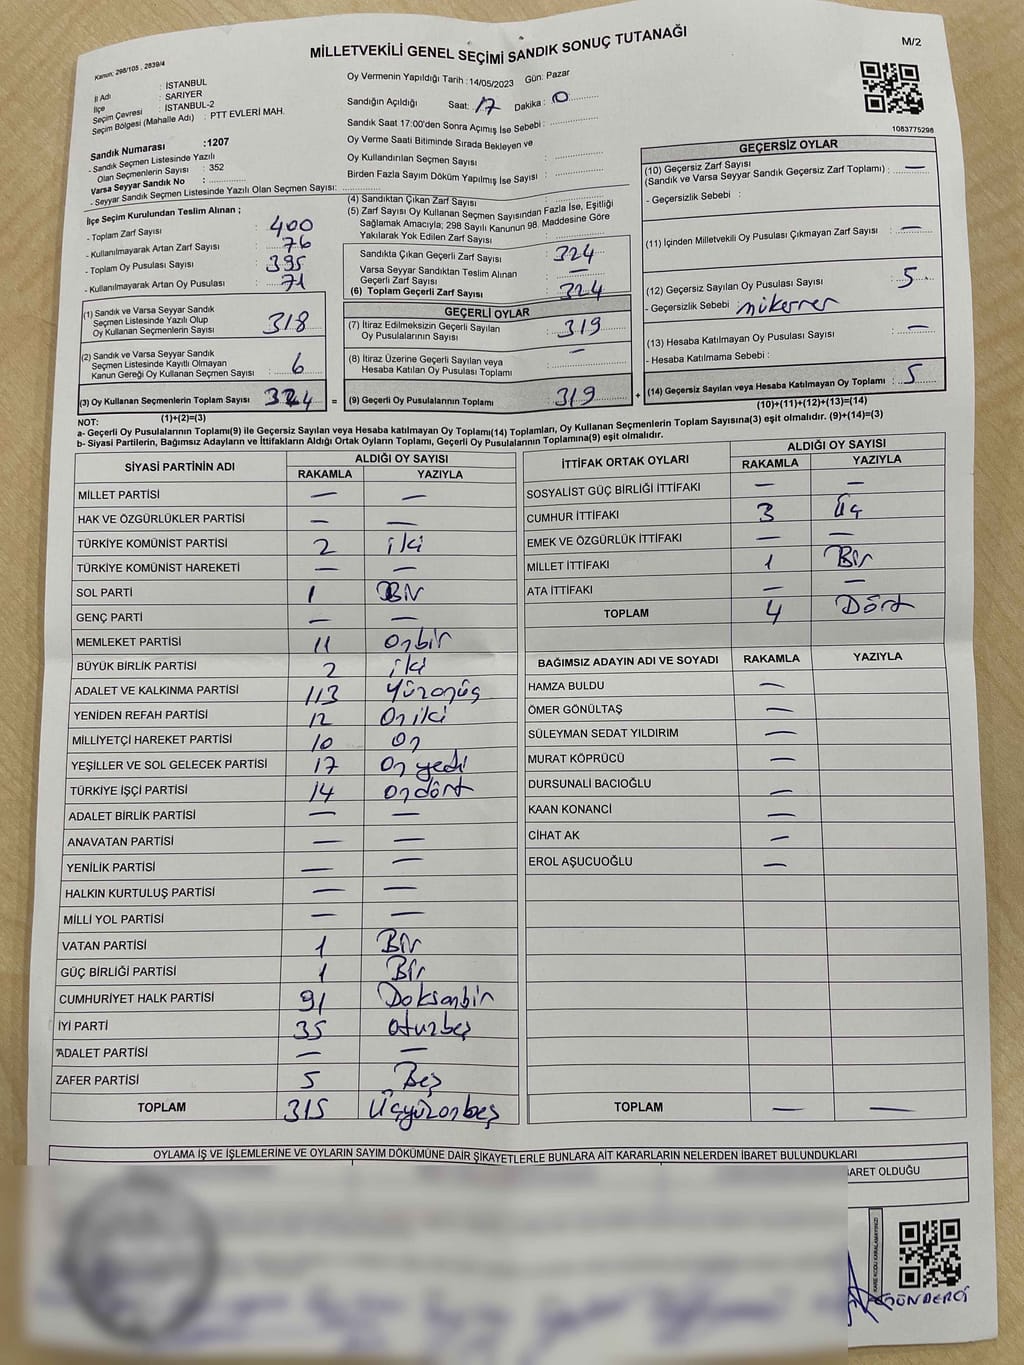 MİLLETVEKİLİ GENEL SEÇİMİ SANDIK SONUÇ TUTANAĞI
M/2
Kanun: 298/105 , 2839/4
İl Adı : İSTANBUL
İlçe : SARIYER
Seçim Çevresi : İSTANBUL-2
Seçim Bölgesi (Mahalle Adı) : PTT EVLERİ MAH.
Sandık Numarası :1207
- Sandık Seçmen Listesinde Yazılı
Olan Seçmenlerin Sayısı : 352
Varsa Seyyar Sandık No :
- Seyyar Sandık Seçmen Listesinde Yazılı Olan Seçmen Sayısı:
Oy Vermenin Yapıldığı Tarih : 14/05/2023 Gün: Pazar
Sandığın Açıldığı Saat: 17 Dakika: 0
Sandık Saat 17:00'den Sonra Açımış İse Sebebi :
Oy Verme Saati Bitiminde Sırada Bekleyen ve
Oy Kullandırılan Seçmen Sayısı :
Birden Fazla Sayım Döküm Yapılmış İse Sayısı :
1083775298
İlçe Seçim Kurulundan Teslim Alınan ;
- Toplam Zarf Sayısı : 400
- Kullanılmayarak Artan Zarf Sayısı : 76
- Toplam Oy Pusulası Sayısı : 395
- Kullanılmayarak Artan Oy Pusulası : 71
(1) Sandık ve Varsa Seyyar Sandık
Seçmen Listesinde Yazılı Olup
Oy Kullanan Seçmenlerin Sayısı : 318
(2) Sandık ve Varsa Seyyar Sandık
Seçmen Listesinde Kayıtlı Olmayan
Kanun Gereği Oy Kullanan Seçmen Sayısı : 6
(3) Oy Kullanan Seçmenlerin Toplam Sayısı 324
(1)+(2)=(3)
(4) Sandıktan Çıkan Zarf Sayısı :
(5) Zarf Sayısı Oy Kullanan Seçmen Sayısından Fazla İse, Eşitliği
Sağlamak Amacıyla; 298 Sayılı Kanunun 98. Maddesine Göre
Yakılarak Yok Edilen Zarf Sayısı :
Sandıkta Çıkan Geçerli Zarf Sayısı : 324
Varsa Seyyar Sandıktan Teslim Alınan
Geçerli Zarf Sayısı : —
(6) Toplam Geçerli Zarf Sayısı : 324
GEÇERLİ OYLAR
(7) İtiraz Edilmeksizin Geçerli Sayılan
Oy Pusulalarının Sayısı : 319
(8) İtiraz Üzerine Geçerli Sayılan veya
Hesaba Katılan Oy Pusulası Toplamı : —
= (9) Geçerli Oy Pusulalarının Toplamı : 319
GEÇERSİZ OYLAR
(10) Geçersiz Zarf Sayısı
(Sandık ve Varsa Seyyar Sandık Geçersiz Zarf Toplamı) : —
- Geçersizlik Sebebi :
(11) İçinden Milletvekili Oy Pusulası Çıkmayan Zarf Sayısı : —
(12) Geçersiz Sayılan Oy Pusulası Sayısı : 5
- Geçersizlik Sebebi : mükerrer
(13) Hesaba Katılmayan Oy Pusulası Sayısı : —
- Hesaba Katılmama Sebebi :
+ (14) Geçersiz Sayılan veya Hesaba Katılmayan Oy Toplamı : 5
(10)+(11)+(12)+(13)=(14)
NOT:
a- Geçerli Oy Pusulaları Toplamı(9) ile Geçersiz Sayılan veya Hesaba katılmayan Oy Toplamı(14) Toplamları, Oy Kullanan Seçmenlerin Toplam Sayısına(3) eşit olmalıdır. (9)+(14)=(3)
b- Siyasi Partilerin, Bağımsız Adayların ve İttifakların Aldığı Ortak Oyların Toplamı, Geçerli Oy Pusulalarının Toplamına(9) eşit olmalıdır.
SİYASİ PARTİNİN ADI ALDIĞI OY SAYISI
RAKAMLA YAZIYLA
MİLLET PARTİSİ — —
HAK VE ÖZGÜRLÜKLER PARTİSİ — —
TÜRKİYE KOMÜNİST PARTİSİ 2 iki
TÜRKİYE KOMÜNİST HAREKETİ — —
SOL PARTİ 1 Bir
GENÇ PARTİ — —
MEMLEKET PARTİSİ 11 Onbir
BÜYÜK BİRLİK PARTİSİ 2 iki
ADALET VE KALKINMA PARTİSİ 113 Yüzonüç
YENİDEN REFAH PARTİSİ 12 On iki
MİLLİYETÇİ HAREKET PARTİSİ 10 On
YEŞİLLER VE SOL GELECEK PARTİSİ 17 On yedi
TÜRKİYE İŞÇİ PARTİSİ 14 Ondört
ADALET BİRLİK PARTİSİ — —
ANAVATAN PARTİSİ — —
YENİLİK PARTİSİ — —
HALKIN KURTULUŞ PARTİSİ — —
MİLLİ YOL PARTİSİ — —
VATAN PARTİSİ 1 Bir
GÜÇ BİRLİĞİ PARTİSİ 1 Bir
CUMHURİYET HALK PARTİSİ 91 Doksanbir
İYİ PARTİ 35 Otuzbeş
ADALET PARTİSİ — —
ZAFER PARTİSİ 5 Beş
TOPLAM 315 Üçyüzonbeş
İTTİFAK ORTAK OYLARI ALDIĞI OY SAYISI
RAKAMLA YAZIYLA
SOSYALİST GÜÇ BİRLİĞİ İTTİFAKI — —
CUMHUR İTTİFAKI 3 Üç
EMEK VE ÖZGÜRLÜK İTTİFAKI — —
MİLLET İTTİFAKI 1 Bir
ATA İTTİFAKI — —
TOPLAM 4 Dört
BAĞIMSIZ ADAYIN ADI VE SOYADI RAKAMLA YAZIYLA
HAMZA BULDU —
ÖMER GÖNÜLTAŞ —
SÜLEYMAN SEDAT YILDIRIM —
MURAT KÖPRÜCÜ —
DURSUNALİ BACIOĞLU —
KAAN KONANCİ —
CİHAT AK —
EROL AŞUCUOĞLU —
TOPLAM — —
OYLAMA İŞ VE İŞLEMLERİNE VE OYLARIN SAYIM DÖKÜMÜNE DAİR ŞİKAYETLERLE BUNLARA AİT KARARLARIN NELERDEN İBARET BULUNDUKLARI
BARET OLDUĞU
KARE KODU KARALAMAYINIZ!